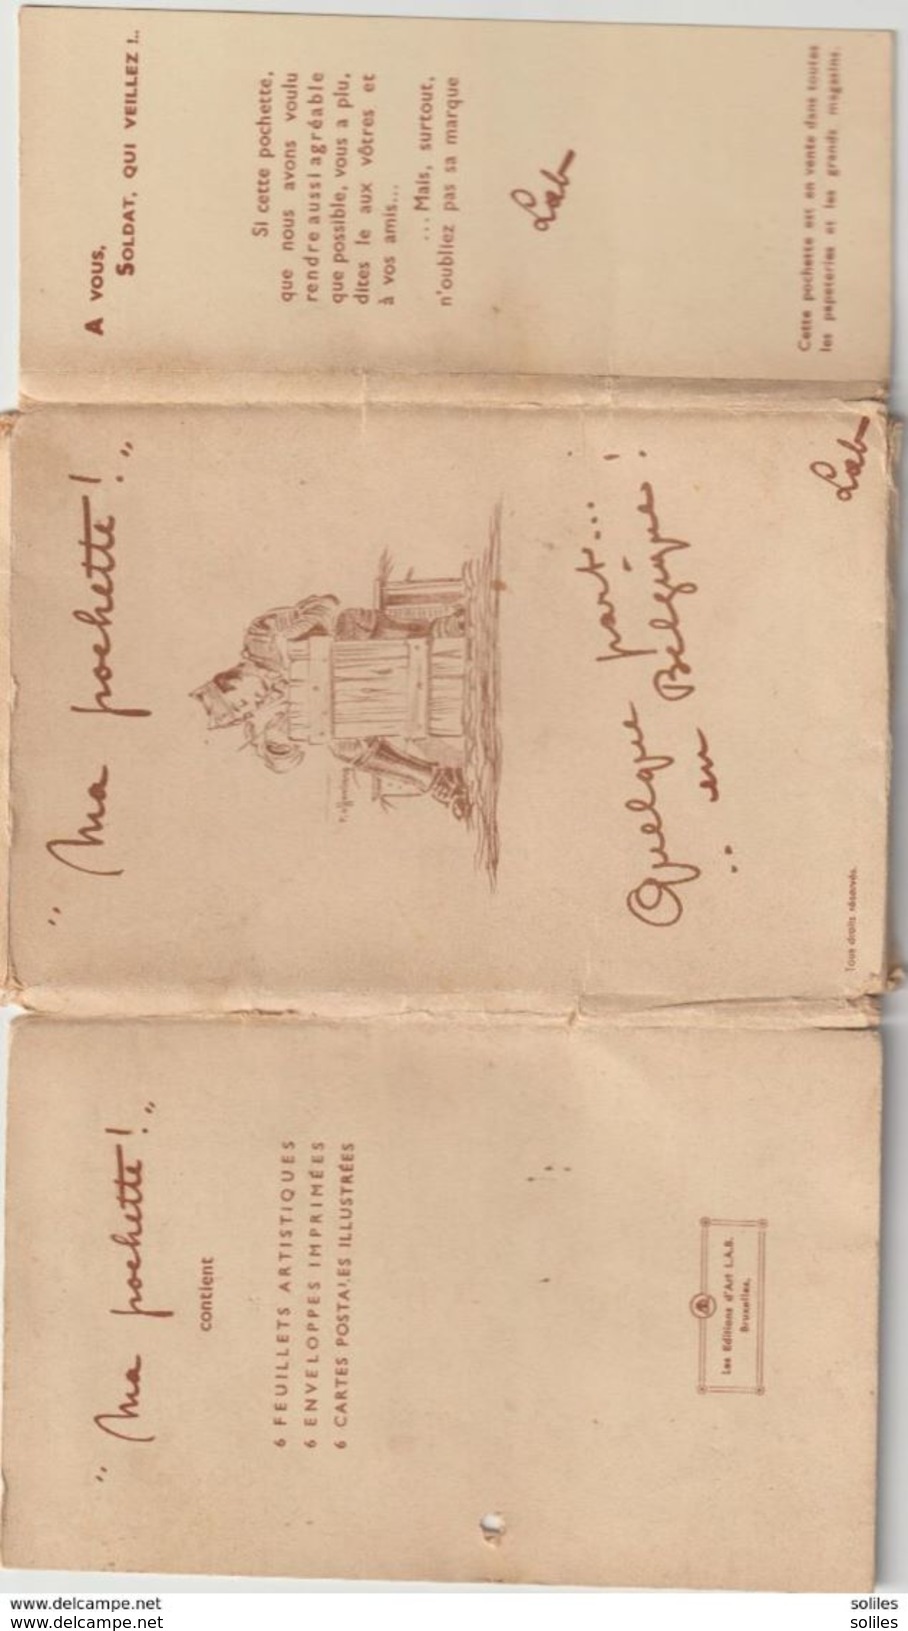 A VOUS,
SOLDAT, QUI VEILLEZ !..
Si cette pochette,
que nous avons voulu
rendre aussi agréable
que possible, vous a plu,
dites le aux vôtres et
à vos amis...
...Mais, surtout,
n'oubliez pas sa marque
Lab
Cette pochette est en vente dans toutes
les papeteries et les grands magasins.
" Ma pochette! "
Quelque part...
.. en Belgique!
Tous droits réservés.
Lab
" Ma pochette! "
contient
6 FEUILLETS ARTISTIQUES
6 ENVELOPPES IMPRIMÉES
6 CARTES POSTALES ILLUSTRÉES
Les Editions d'Art L.A.B.
Bruxelles.
www.delcampe.net
soliles
www.delcampe.net
soliles